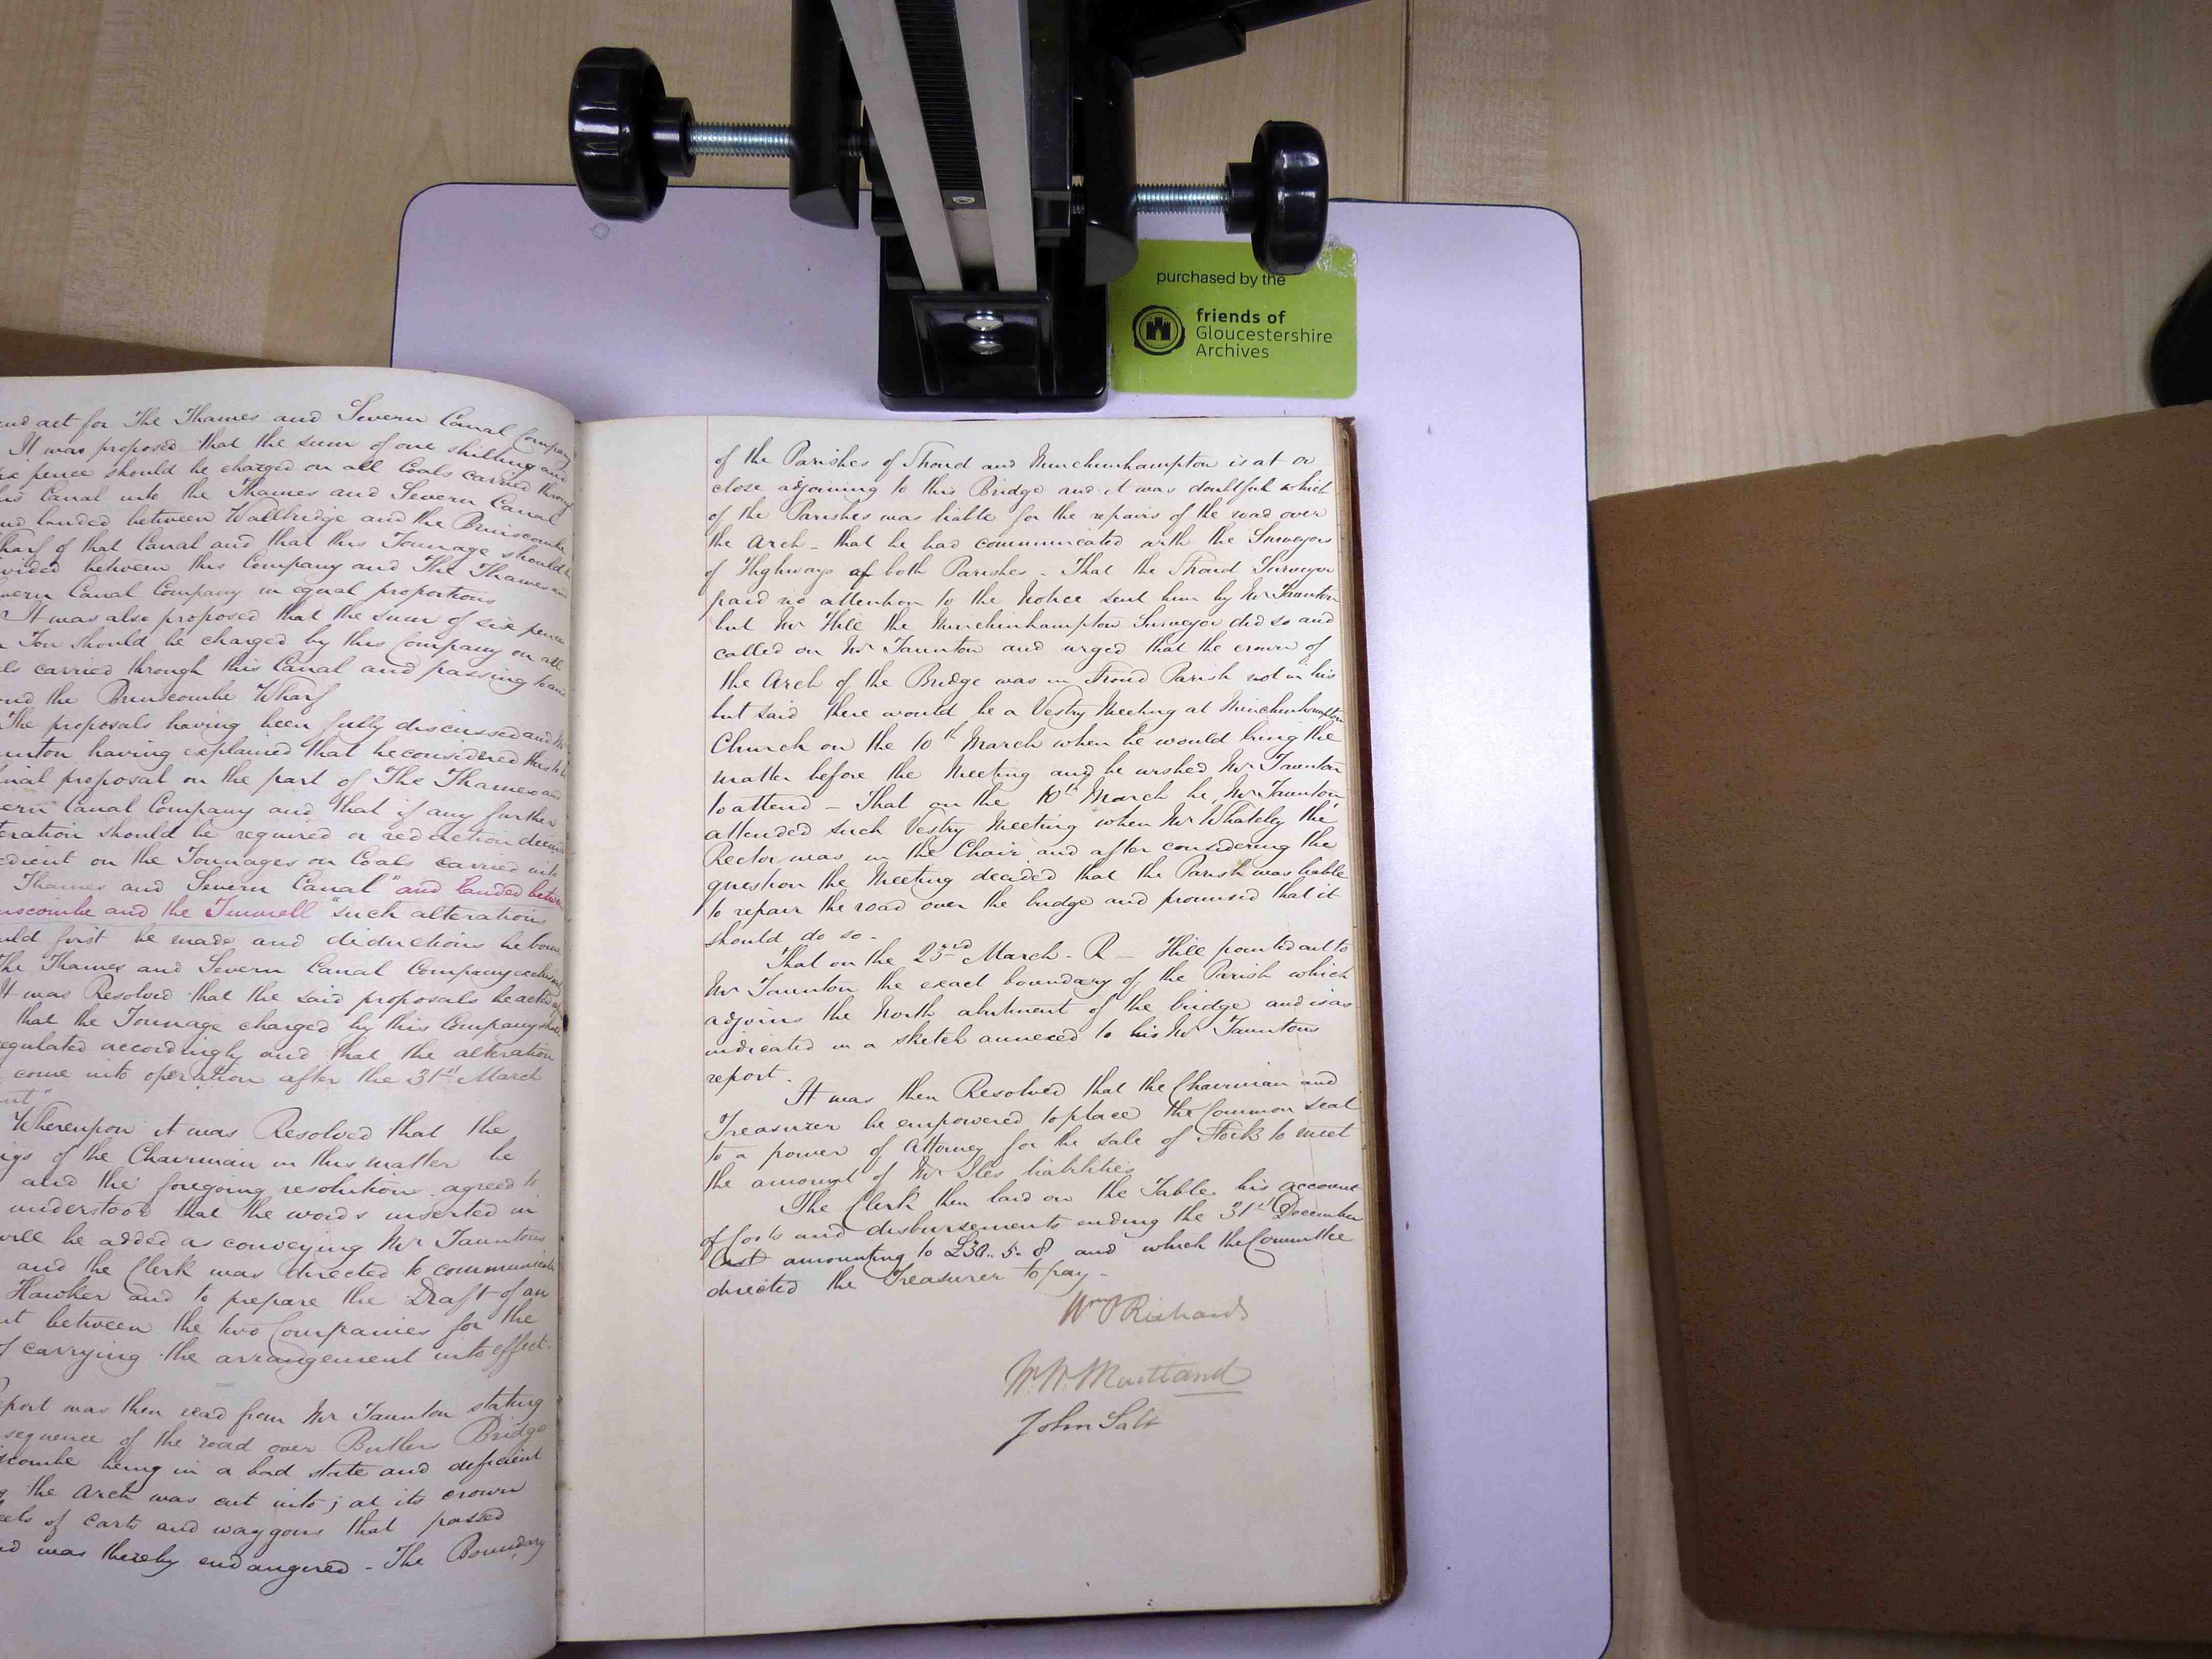 purchased by the
friends of
Gloucestershire
Archives
and act for The Thames and Severn Canal Company
It was proposed that the sum of one shilling and
pence should be charged on all Coals carried through
Canal into the Thames and Severn Canal
landed between Wallbridge and the Brimscombe
of that Canal and that this Tonnage should be
between this Company and The Thames and
Canal Company in equal proportions
It was also proposed that the sum of six pence
Ton should be charged by this Company on all
carried through this Canal and passing to and
the Brimscombe Wharf
The proposals having been fully discussed and Mr
having explained that he considered this to be
proposal on the part of The Thames and
Canal Company and that if any further
should be required or reduction deemed
on the Tonnages on Coals carried into
Thames and Severn Canal "and landed between
and the Tunnell" such alterations
first be made and deductions be borne
The Thames and Severn Canal Company exclusively
It was Resolved that the said proposals be acted
that the Tonnage charged by this Company
accordingly and that the alteration
come into operation after the 31st March
Whereupon it was Resolved that the
of the Chairman in this matter be
and the foregoing resolutions agreed to
understood that the words inserted in
be added as conveying Mr Tauntons
and the Clerk was directed to communicate
Hawker and to prepare the Draft of an
between the two Companies for the
carrying the arrangement into effect.
was then read from Mr Taunton stating
of the road over Butlers Bridge
being in a bad state and deficient
the Arch was cut into; at its crown
of carts and waggons that passed
was thereby endangered - The Boundary
of the Parishes of Stroud and Minchinhampton is at or
close adjoining to this Bridge and it was doubtful which
of the Parishes was liable for the repairs of the road over
the Arch - that he had communicated with the Surveyors
of Highways of both Parishes - That the Stroud Surveyor
paid no attention to the Notice sent him by Mr Taunton
but Mr Hill the Minchinhampton Surveyor did so and
called on Mr Taunton and urged that the crown of
the Arch of the Bridge was in Stroud Parish not in his
but said there would be a Vestry Meeting at Minchinhampton
Church on the 10th March when he would bring the
matter before the Meeting and he wished Mr Taunton
to attend - That on the 10th March he, Mr Taunton
attended such Vestry Meeting when Mr Whateley the
Rector was in the Chair and after considering the
question the Meeting decided that the Parish was liable
to repair the road over the bridge and promised that it
should do so -
That on the 23rd March - R - Hill pointed out to
Mr Taunton the exact boundary of the Parish which
adjoins the North abutment of the bridge and is as
indicated in a sketch annexed to his Mr Tauntons
report.
It was then Resolved that the Chairman and
Treasurer be empowered to place the Common Seal
to a power of Attorney for the sale of Stock to meet
the amount of Mr Iles liabilities
The Clerk then laid on the Table his account
of Costs and disbursements ending the 31st December
last amounting to £30.. 5. 8 and which the Committee
directed the Treasurer to pay -
Wm P Richards
W. W. Maitland
John Salt